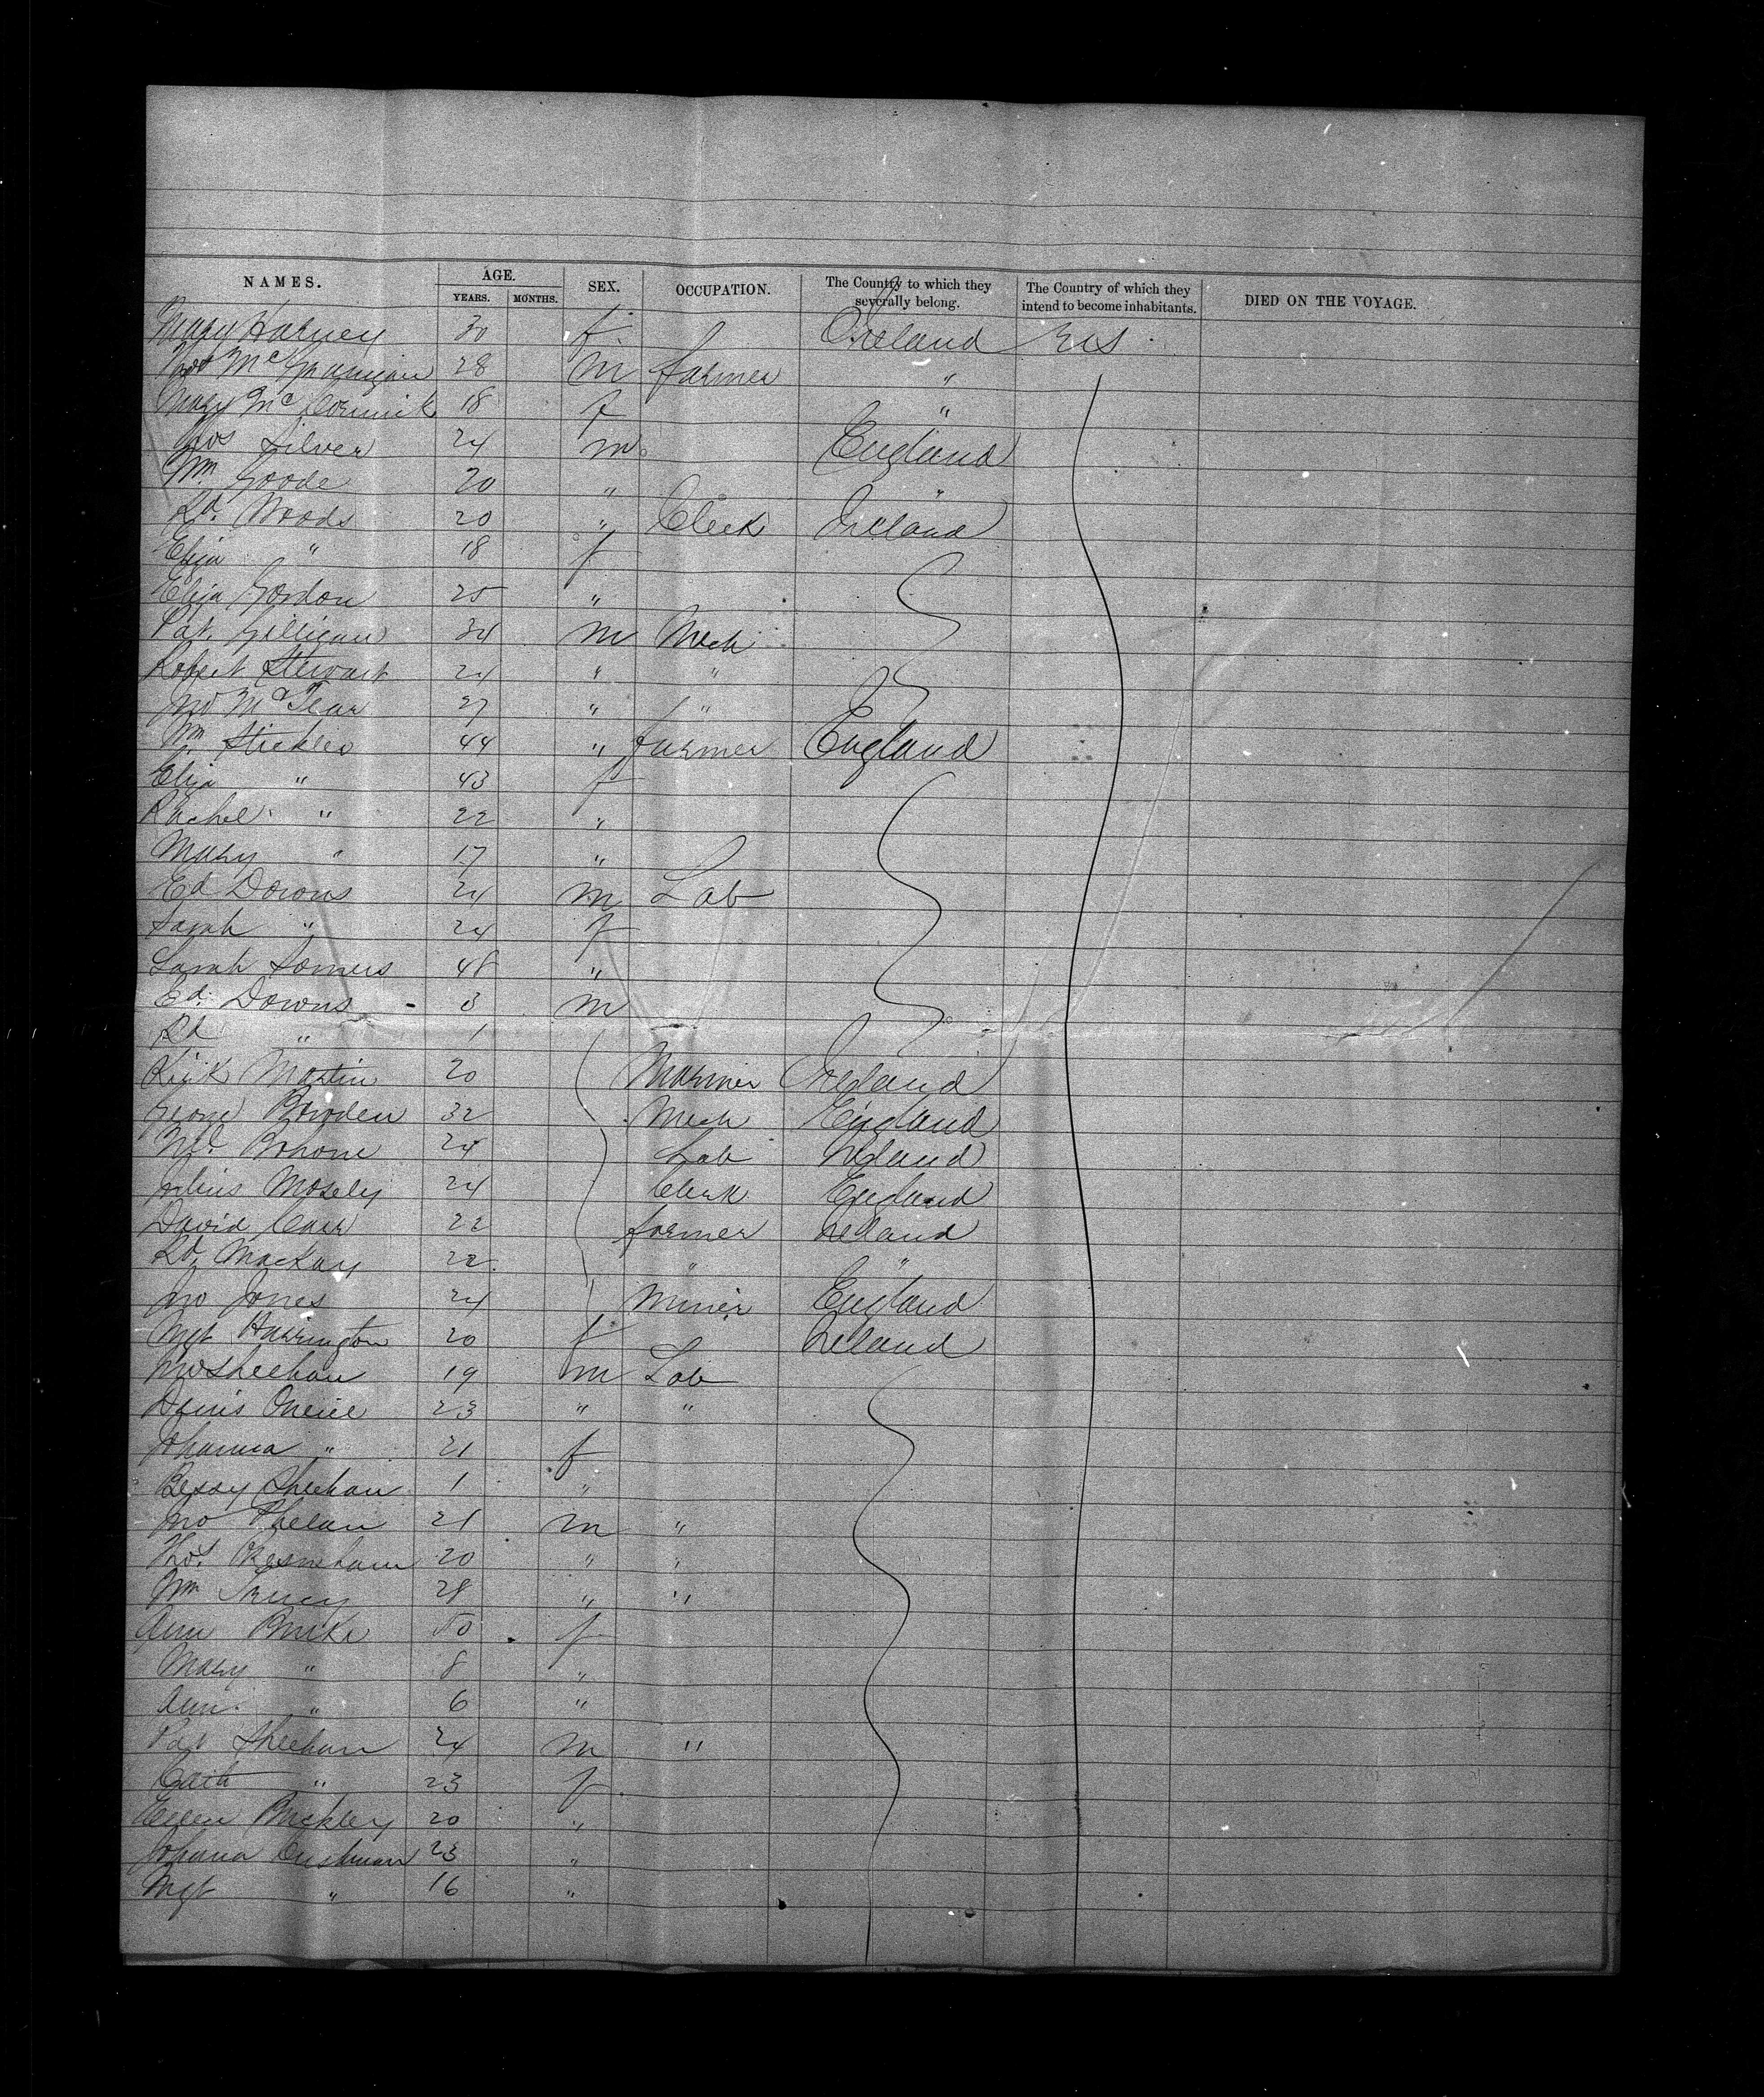 NAMES. AGE. SEX. OCCUPATION. The Country to which they severally belong. The Country of which they intend to become inhabitants. DIED ON THE VOYAGE.
YEARS. MONTHS.
Mary Harvey 30 f Ireland US
28 m farmer "
Mary McCormick 18 f "
Jos Silver 24 m England
Wm Goode 20 " "
Rd. Woods 20 " Clerk Ireland
Eliza " 18 f
Eliza Gordon 25 "
Pat. Gilligan 34 m Mech
Robert Stewart 24 " "
Jno McTear 27 " "
Wm 44 " farmer England
Eliza " 43 f
Rachel " 22 "
Mary " 17 "
Ed Downs 24 m Lab
Sarah " 24 f
Sarah Somers 48 "
Ed. Downs 3 m
Rd " 1
Martin 20 Mariner Ireland
George Bowden 32 Mech England
24 Lab Ireland
Julius Mosely 24 Clerk England
David Carr 22 farmer Ireland
Rd. Mackay 22 " "
Jno Jones 24 Miner England
Mgt Harrington 20 f Ireland
Jno Sheehan 19 m Lab
Denis Oneill 23 " "
Johanna " 21 f
Bessy Sheehan 1 "
Jno Phelan 21 m "
Thos. 20 " "
Wm 28 " "
Ann Burke 50 f
Mary " 8 "
Ann " 6 "
Pat Sheehan 24 m "
Cath " 23 f
Ellen Buckley 20 "
Johana Cushman 23 "
Mgt " 16 "